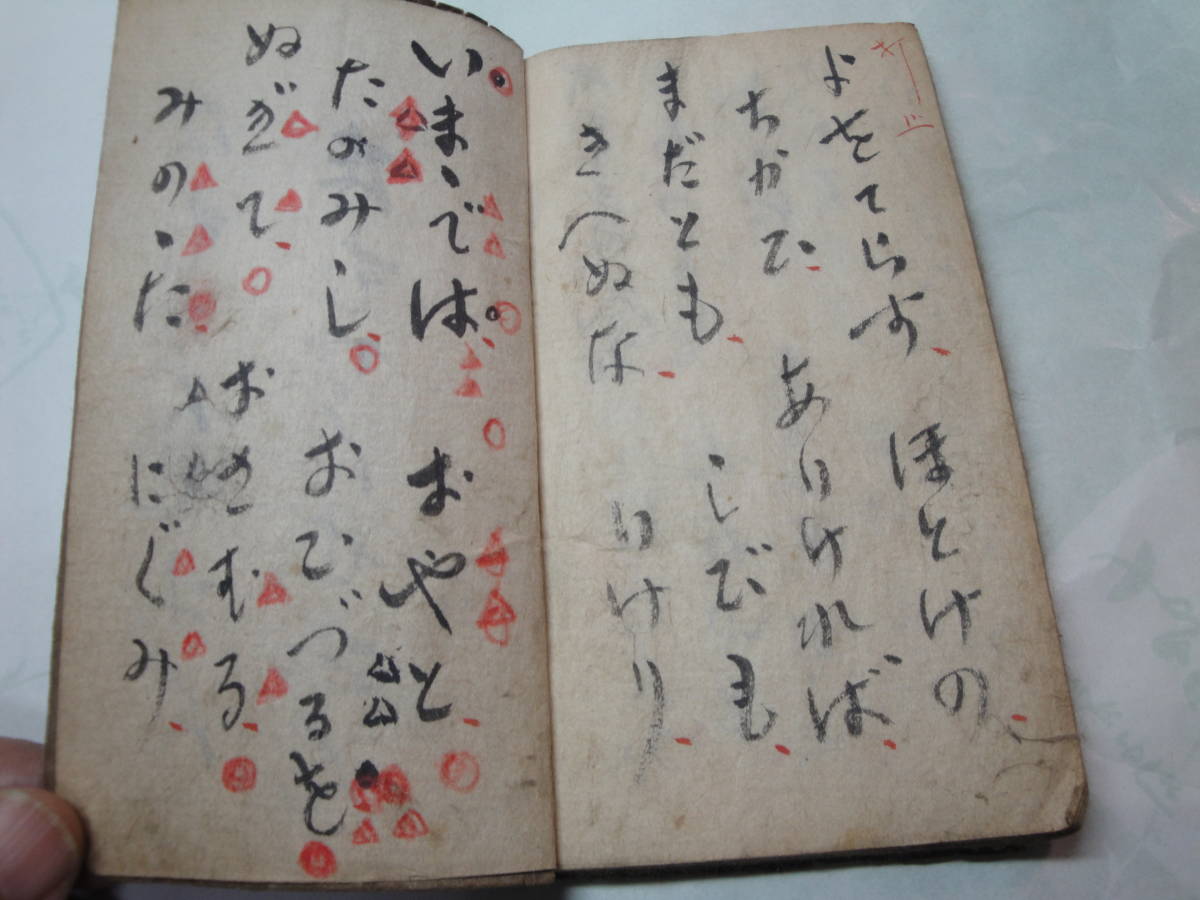 よをてらす ほとけの
ちかひ ありければ
まだとも しびも
きへぬな りけり
いまゝでは おやと
たのみし おひづるを
ぬぎて おさむる
みのゝた にぐみ